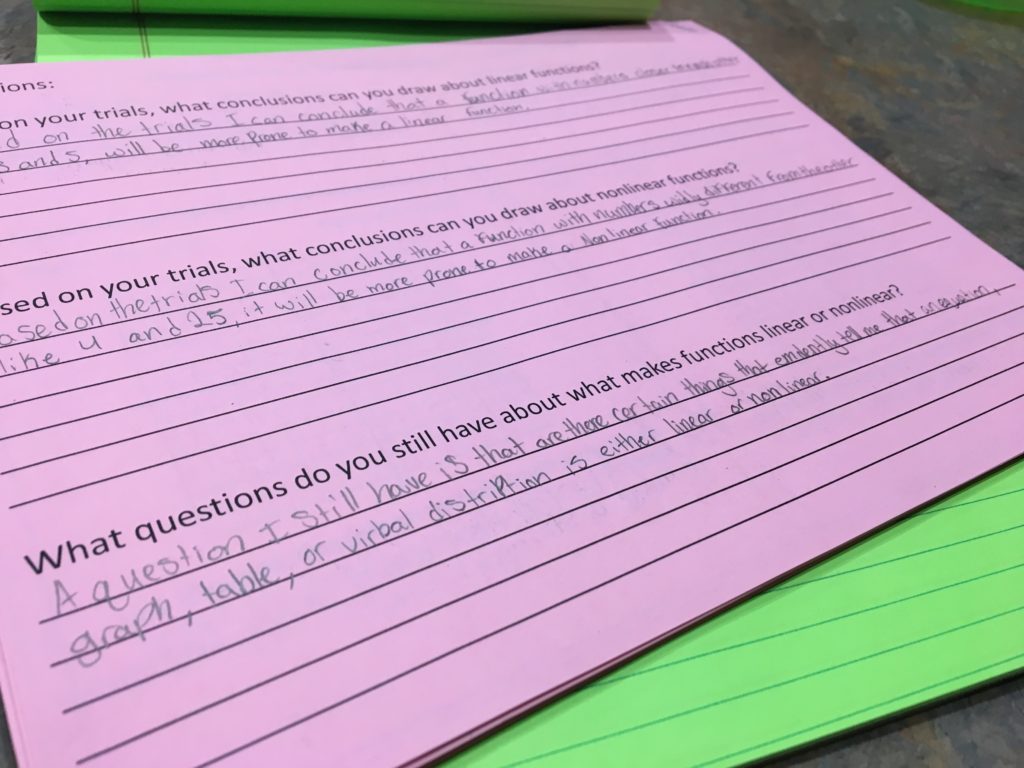 ions:
on your trials, what conclusions can you draw about linear functions?
d on the trials I can conclude that a function with numbers closer
and 5, will be more prone to make a linear function.
sed on your trials, what conclusions can you draw about nonlinear functions?
ased on the trials I can conclude that a function with numbers wildly different from the other
like 4 and 25, it will be more prone to make a Non linear function.
What questions do you still have about what makes functions linear or nonlinear?
A question I still have is that are there certain things that emidently tell me that an equation,
graph, table, or virbal distription is either linear or non linear.